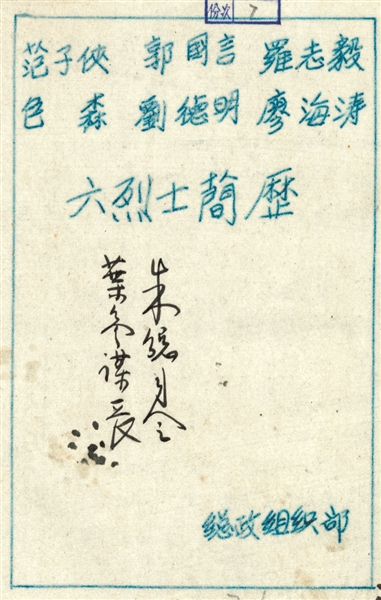 份次 7
范子俠 郭國言 羅志毅
色森 劉德明 廖海涛
六烈士簡歷
朱總司令
葉参謀長
總政組织部